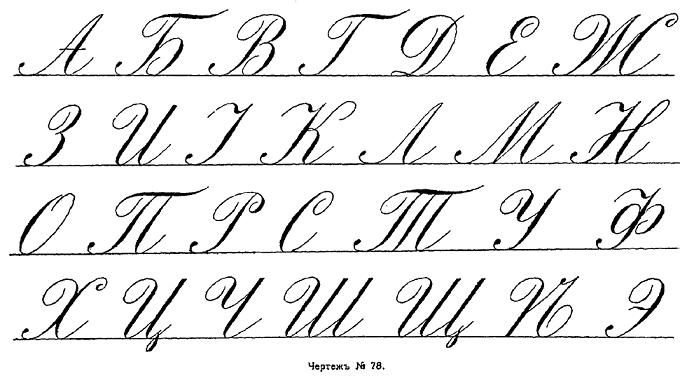 А Б В Г Д Е Ж
З И І К Л М Н
О П Р С Т У Ф
Х Ц Ч Ш Щ Ѣ Э
Чертежъ № 78.